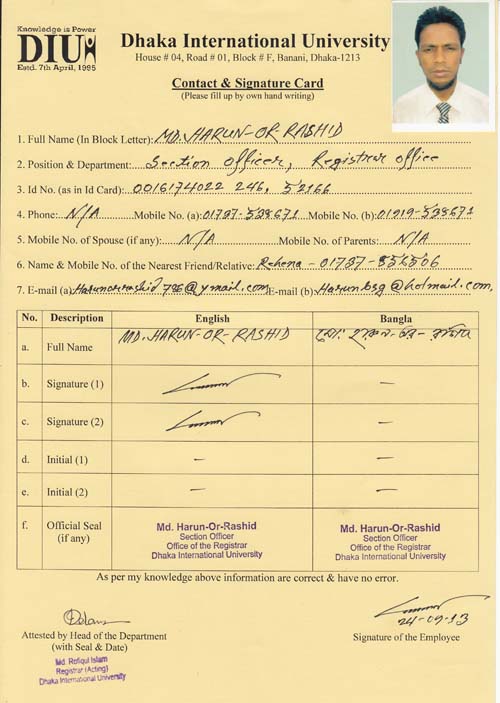 Knowledge is Power
DIU
Estd. 7th April, 1995
Dhaka International University
House # 04, Road # 01, Block # F, Banani, Dhaka-1213
Contact & Signature Card
(Please fill up by own hand writing)
1. Full Name (In Block Letter): MD. HARUN-OR-RASHID
2. Position & Department: Section officer, Registrar office
3. Id No. (as in Id Card): 0016174022 246, 52166
4. Phone: N/A Mobile No. (a): 01737-538671 Mobile No. (b): 01919-538671
5. Mobile No. of Spouse (if any): N/A Mobile No. of Parents: N/A
6. Name & Mobile No. of the Nearest Friend/Relative: Rehena - 01737-856506
7. E-mail (a): Harunorrashid786@ymail.com E-mail (b): Harunbsg@hotmail.com,
No. Description English Bangla
a. Full Name MD. HARUN-OR-RASHID মো: হারুন-অর-রশীদ
b. Signature (1) –
c. Signature (2) –
d. Initial (1) – –
e. Initial (2) – –
f. Official Seal (if any)
Md. Harun-Or-Rashid
Section Officer
Office of the Registrar
Dhaka International University
Md. Harun-Or-Rashid
Section Officer
Office of the Registrar
Dhaka International University
As per my knowledge above information are correct & have no error.
24-09-13
Attested by Head of the Department
(with Seal & Date)
Signature of the Employee
Md. Rofiqul Islam
Registrar (Acting)
Dhaka International University